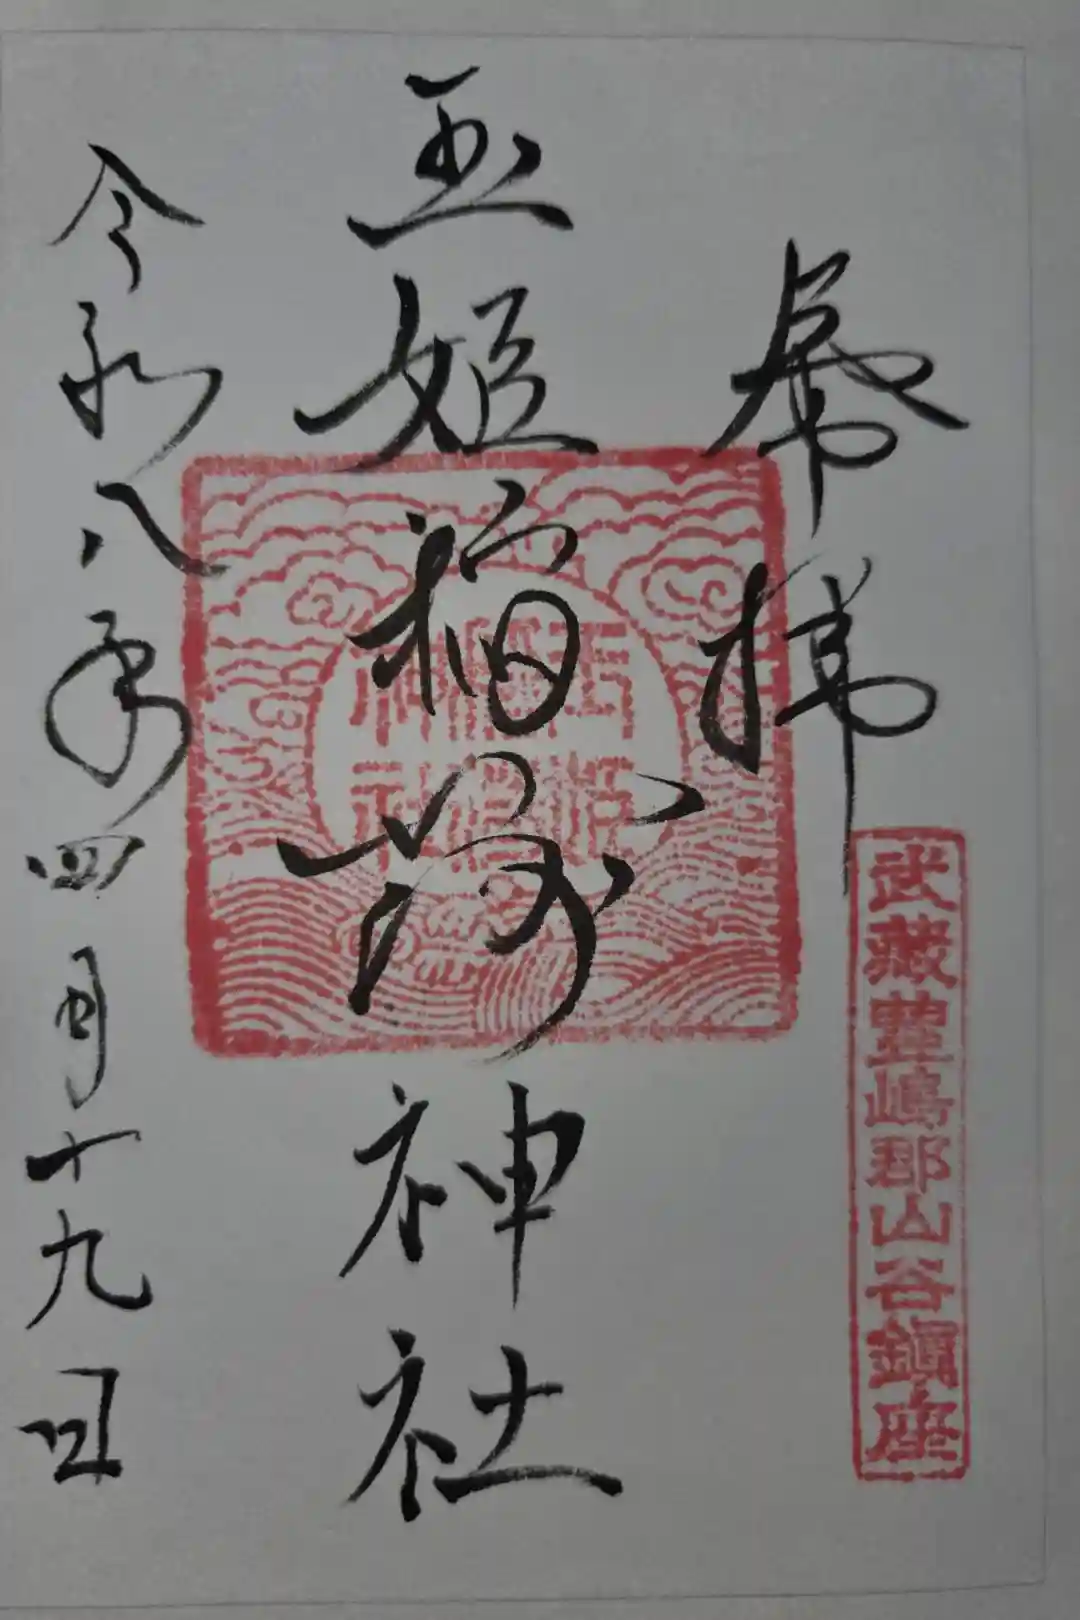 奉拝
武藏豊嶋郡山谷鎮座
玉姫稲荷神社
玉姫稲荷神社
令和八年四月十九日